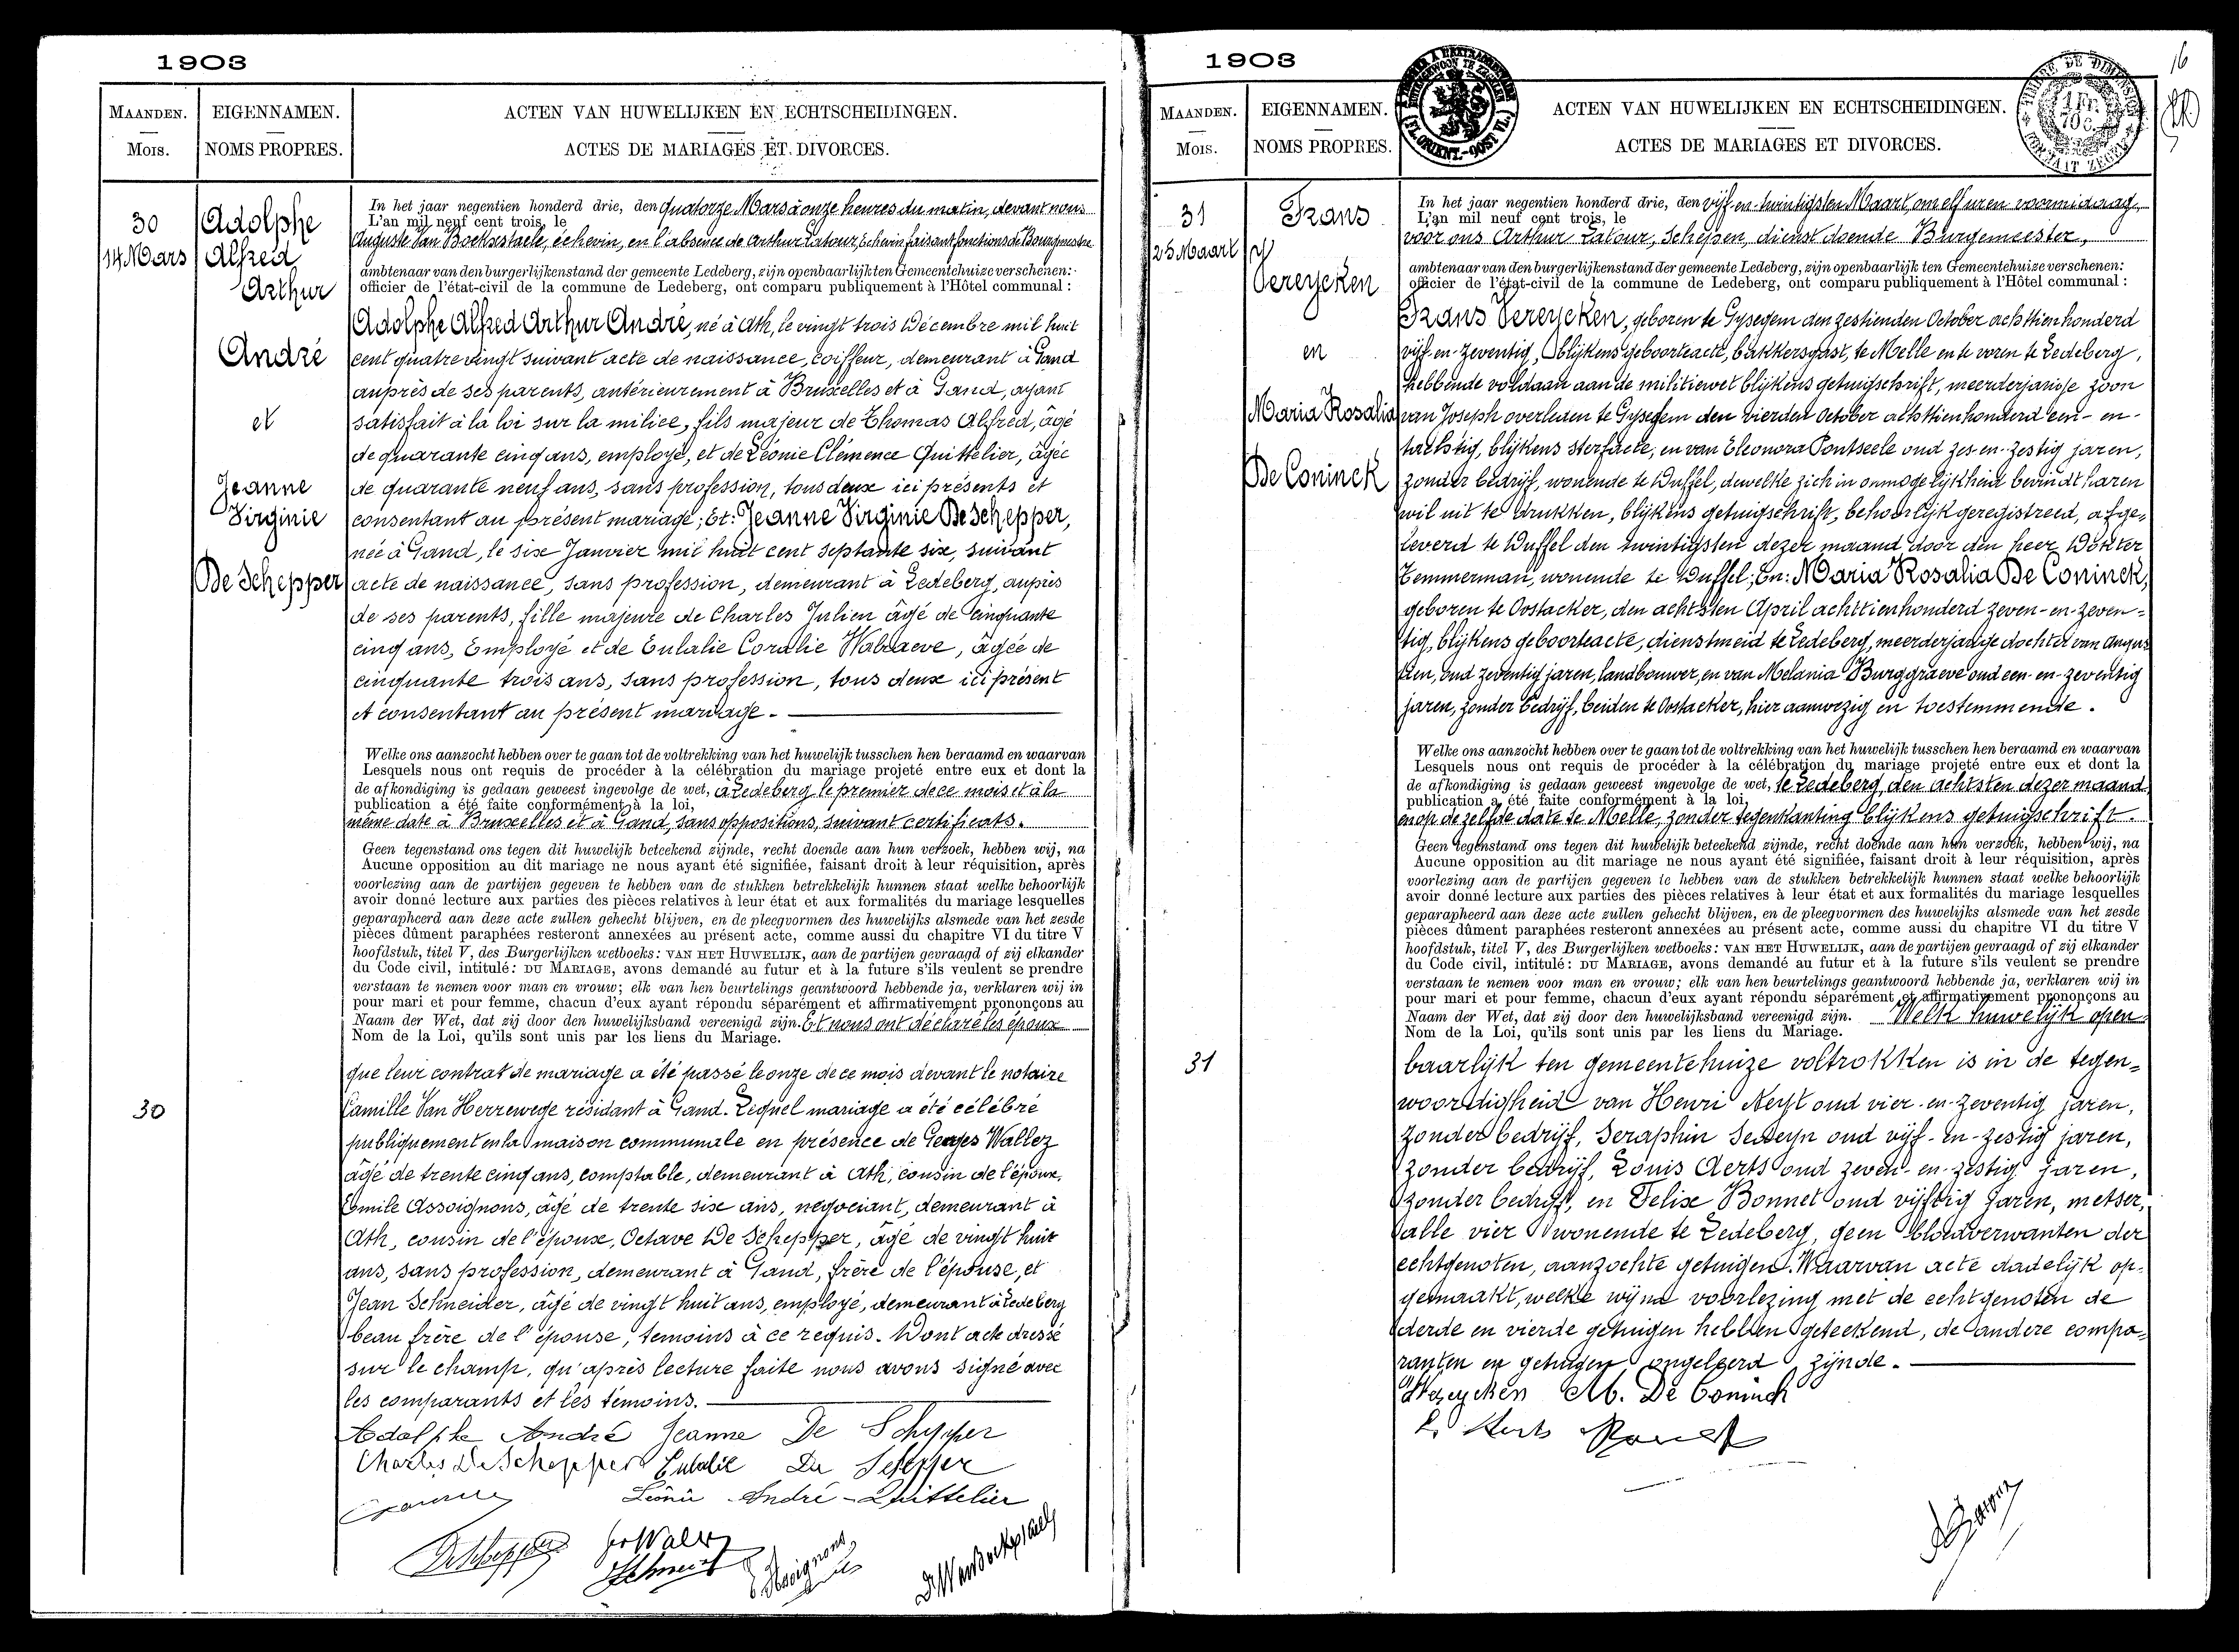 1903
MAANDEN.
Mois.
EIGENNAMEN.
NOMS PROPRES.
ACTEN VAN HUWELIJKEN EN ECHTSCHEIDINGEN.
ACTES DE MARIAGES ET DIVORCES.
30
14 Mars
Adolphe
Alfred
Arthur
André
et
Jeanne
Virginie
De Schepper
30
In het jaar negentien honderd drie, den quatorze Mars à onze heures du matin, devant nous
L'an mil neuf cent trois, le
Auguste Van Bockxstaele, échevin, en l'absence de Arthur Latour, Echevin faisant fonctions de Bourgmestre
ambtenaar van den burgerlijkenstand der gemeente Ledeberg, zijn openbaarlijk ten Gemeentehuize verschenen:
officier de l'état-civil de la commune de Ledeberg, ont comparu publiquement à l'Hôtel communal :
Adolphe Alfred Arthur André, né à Ath, le vingt trois Décembre mil huit
cent quatre vingt suivant acte de naissance, coiffeur, demeurant à Gand
auprès de ses parents, antérieurement à Bruxelles et à Gand, ayant
satisfait à la loi sur la milice, fils majeur de Thomas Alfred, âgé
de quarante cinq ans, employé, et de Léonie Clémence Quittelier, âgée
de quarante neuf ans, sans profession, tous deux ici présents et
consentant au présent mariage; Et: Jeanne Virginie De Schepper,
née à Gand, le six Janvier mil huit cent septante six, suivant
acte de naissance, sans profession, demeurant à Ledeberg, auprès
de ses parents, fille majeure de Charles Julien âgé de cinquante
cinq ans, Employé et de Eulalie Coralie Walraeve, âgée de
cinquante trois ans, sans profession, tous deux ici présent
et consentant au présent mariage.
Welke ons aanzocht hebben over te gaan tot de voltrekking van het huwelijk tusschen hen beraamd en waarvan
Lesquels nous ont requis de procéder à la célébration du mariage projeté entre eux et dont la
de afkondiging is gedaan geweest ingevolge de wet, à Ledeberg le premier de ce mois et à la
publication a été faite conformément à la loi,
même date à Bruxelles et à Gand, sans oppositions, suivant certificats.
Geen tegenstand ons tegen dit huwelijk beteekend zijnde, recht doende aan hun verzoek, hebben wij, na
Aucune opposition au dit mariage ne nous ayant été signifiée, faisant droit à leur réquisition, après
voorlezing aan de partijen gegeven te hebben van de stukken betrekkelijk hunnen staat welke behoorlijk
avoir donné lecture aux parties des pièces relatives à leur état et aux formalités du mariage lesquelles
geparapheerd aan deze acte zullen gehecht blijven, en de pleegvormen des huwelijks alsmede van het zesde
pièces dûment paraphées resteront annexées au présent acte, comme aussi du chapitre VI du titre V
hoofdstuk, titel V, des Burgerlijken wetboeks: VAN HET HUWELIJK, aan de partijen gevraagd of zij elkander
du Code civil, intitulé: DU MARIAGE, avons demandé au futur et à la future s'ils veulent se prendre
verstaan te nemen voor man en vrouw; elk van hen beurtelings geantwoord hebbende ja, verklaren wij in
pour mari et pour femme, chacun d'eux ayant répondu séparément et affirmativement prononçons au
Naam der Wet, dat zij door den huwelijksband vereenigd zijn. Et nous ont déclaré les époux
Nom de la Loi, qu'ils sont unis par les liens du Mariage.
que leur contrat de mariage a été passé le onze de ce mois devant le notaire
Camille Van Herrewege résidant à Gand. Lequel mariage a été célébré
publiquement en la maison communale en présence de Georges Wallez
âgé de trente cinq ans, comptable, demeurant à Ath, cousin de l'époux,
Emile Assoignons, âgé de trente six ans, négociant, demeurant à
Ath, cousin de l'épouse, Octave De Schepper, âgé de vingt huit
ans, sans profession, demeurant à Gand, frère de l'épouse, et
Jean Schneider, âgé de vingt huit ans, employé, demeurant à Ledeberg
beau frère de l'épouse, témoins à ce requis. Dont acte dressé
sur le champ, qu'après lecture faite nous avons signé avec
les comparants et les témoins.
Adolphe André Jeanne De Schepper
Charles De Schepper Eulalie De Schepper
Léonie André-Quittelier
1903
16
MAANDEN.
Mois.
EIGENNAMEN.
NOMS PROPRES.
ACTEN VAN HUWELIJKEN EN ECHTSCHEIDINGEN.
ACTES DE MARIAGES ET DIVORCES.
31
25 Maart
Frans
Vereycken
en
Maria Rosalia
De Coninck
31
In het jaar negentien honderd drie, den vijf-en-twintigsten Maart, om elf uren voormiddag,
L'an mil neuf cent trois, le
voor ons Arthur Latour, Schepen, dienstdoende Burgemeester,
ambtenaar van den burgerlijkenstand der gemeente Ledeberg, zijn openbaarlijk ten Gemeentehuize verschenen:
officier de l'état-civil de la commune de Ledeberg, ont comparu publiquement à l'Hôtel communal :
Frans Vereycken, geboren te Gysegem den zestienden October achttienhonderd
vijf-en-zeventig, blijkens geboorteacte, bakkersgast, te Melle en te voren te Ledeberg,
hebbende voldaan aan de militiewet blijkens getuigschrift, meerderjarige zoon
van Joseph overleden te Gysegem den vierden October achttienhonderd een-en-
tachtig, blijkens sterfacte, en van Eleonora Pontseele oud zes-en-zestig jaren,
zonder bedrijf, wonende te Duffel, dewelke zich in onmogelijkheid bevindt haren
wil uit te drukken, blijkens getuigschrift, behoorlijk geregistreerd, afge-
leverd te Duffel den twintigsten dezer maand door den heer Dokter
Temmerman, wonende te Duffel; En: Maria Rosalia De Coninck,
geboren te Oostacker, den achtsten April achttienhonderd zeven-en-zeven-
tig, blijkens geboorteacte, dienstmeid te Ledeberg, meerderjarige dochter van Augus
tien, oud zeventig jaren, landbouwer, en van Melania Burggraeve oud een-en-zeventig
jaren, zonder bedrijf, beiden te Oostacker, hier aanwezig en toestemmende.
Welke ons aanzocht hebben over te gaan tot de voltrekking van het huwelijk tusschen hen beraamd en waarvan
Lesquels nous ont requis de procéder à la célébration du mariage projeté entre eux et dont la
de afkondiging is gedaan geweest ingevolge de wet, te Ledeberg, den achtsten dezer maand
publication a été faite conformément à la loi,
en op de zelfde date te Melle, zonder tegenkanting blijkens getuigschrift.
Geen tegenstand ons tegen dit huwelijk beteekend zijnde, recht doende aan hun verzoek, hebben wij, na
Aucune opposition au dit mariage ne nous ayant été signifiée, faisant droit à leur réquisition, après
voorlezing aan de partijen gegeven te hebben van de stukken betrekkelijk hunnen staat welke behoorlijk
avoir donné lecture aux parties des pièces relatives à leur état et aux formalités du mariage lesquelles
geparapheerd aan deze acte zullen gehecht blijven, en de pleegvormen des huwelijks alsmede van het zesde
pièces dûment paraphées resteront annexées au présent acte, comme aussi du chapitre VI du titre V
hoofdstuk, titel V, des Burgerlijken wetboeks: VAN HET HUWELIJK, aan de partijen gevraagd of zij elkander
du Code civil, intitulé: DU MARIAGE, avons demandé au futur et à la future s'ils veulent se prendre
verstaan te nemen voor man en vrouw; elk van hen beurtelings geantwoord hebbende ja, verklaren wij in
pour mari et pour femme, chacun d'eux ayant répondu séparément et affirmativement prononçons au
Naam der Wet, dat zij door den huwelijksband vereenigd zijn. Welk huwelijk open-
Nom de la Loi, qu'ils sont unis par les liens du Mariage.
baarlijk ten gemeentehuize voltrokken is in de tegen-
woordigheid van Henri Neyt oud vier-en-zeventig jaren,
zonder bedrijf, Seraphin Seweryn oud vijf-en-zestig jaren,
zonder bedrijf, Louis Aerts oud zeven-en-zestig jaren,
zonder bedrijf, en Felix Bonnet oud vijftig jaren, metser,
alle vier wonende te Ledeberg, geen bloedverwanten der
echtgenoten, aanzochte getuigen. Waarvan acte dadelijk op-
gemaakt, welke wij na voorlezing met de echtgenoten de
derde en vierde getuigen hebben geteekend, de andere compa-
ranten en getuigen ongeleerd zijnde.
Vereycken M. De Coninck
L. Aerts Bonnet